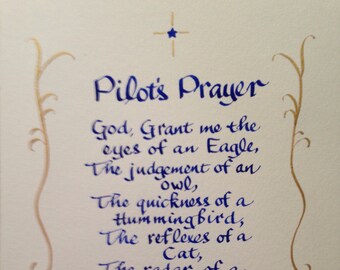 Pilot's Prayer
God, Grant me the
eyes of an Eagle,
The judgement of an
owl,
The quickness of a
Hummingbird,
The reflexes of a
Cat,
The radar of a